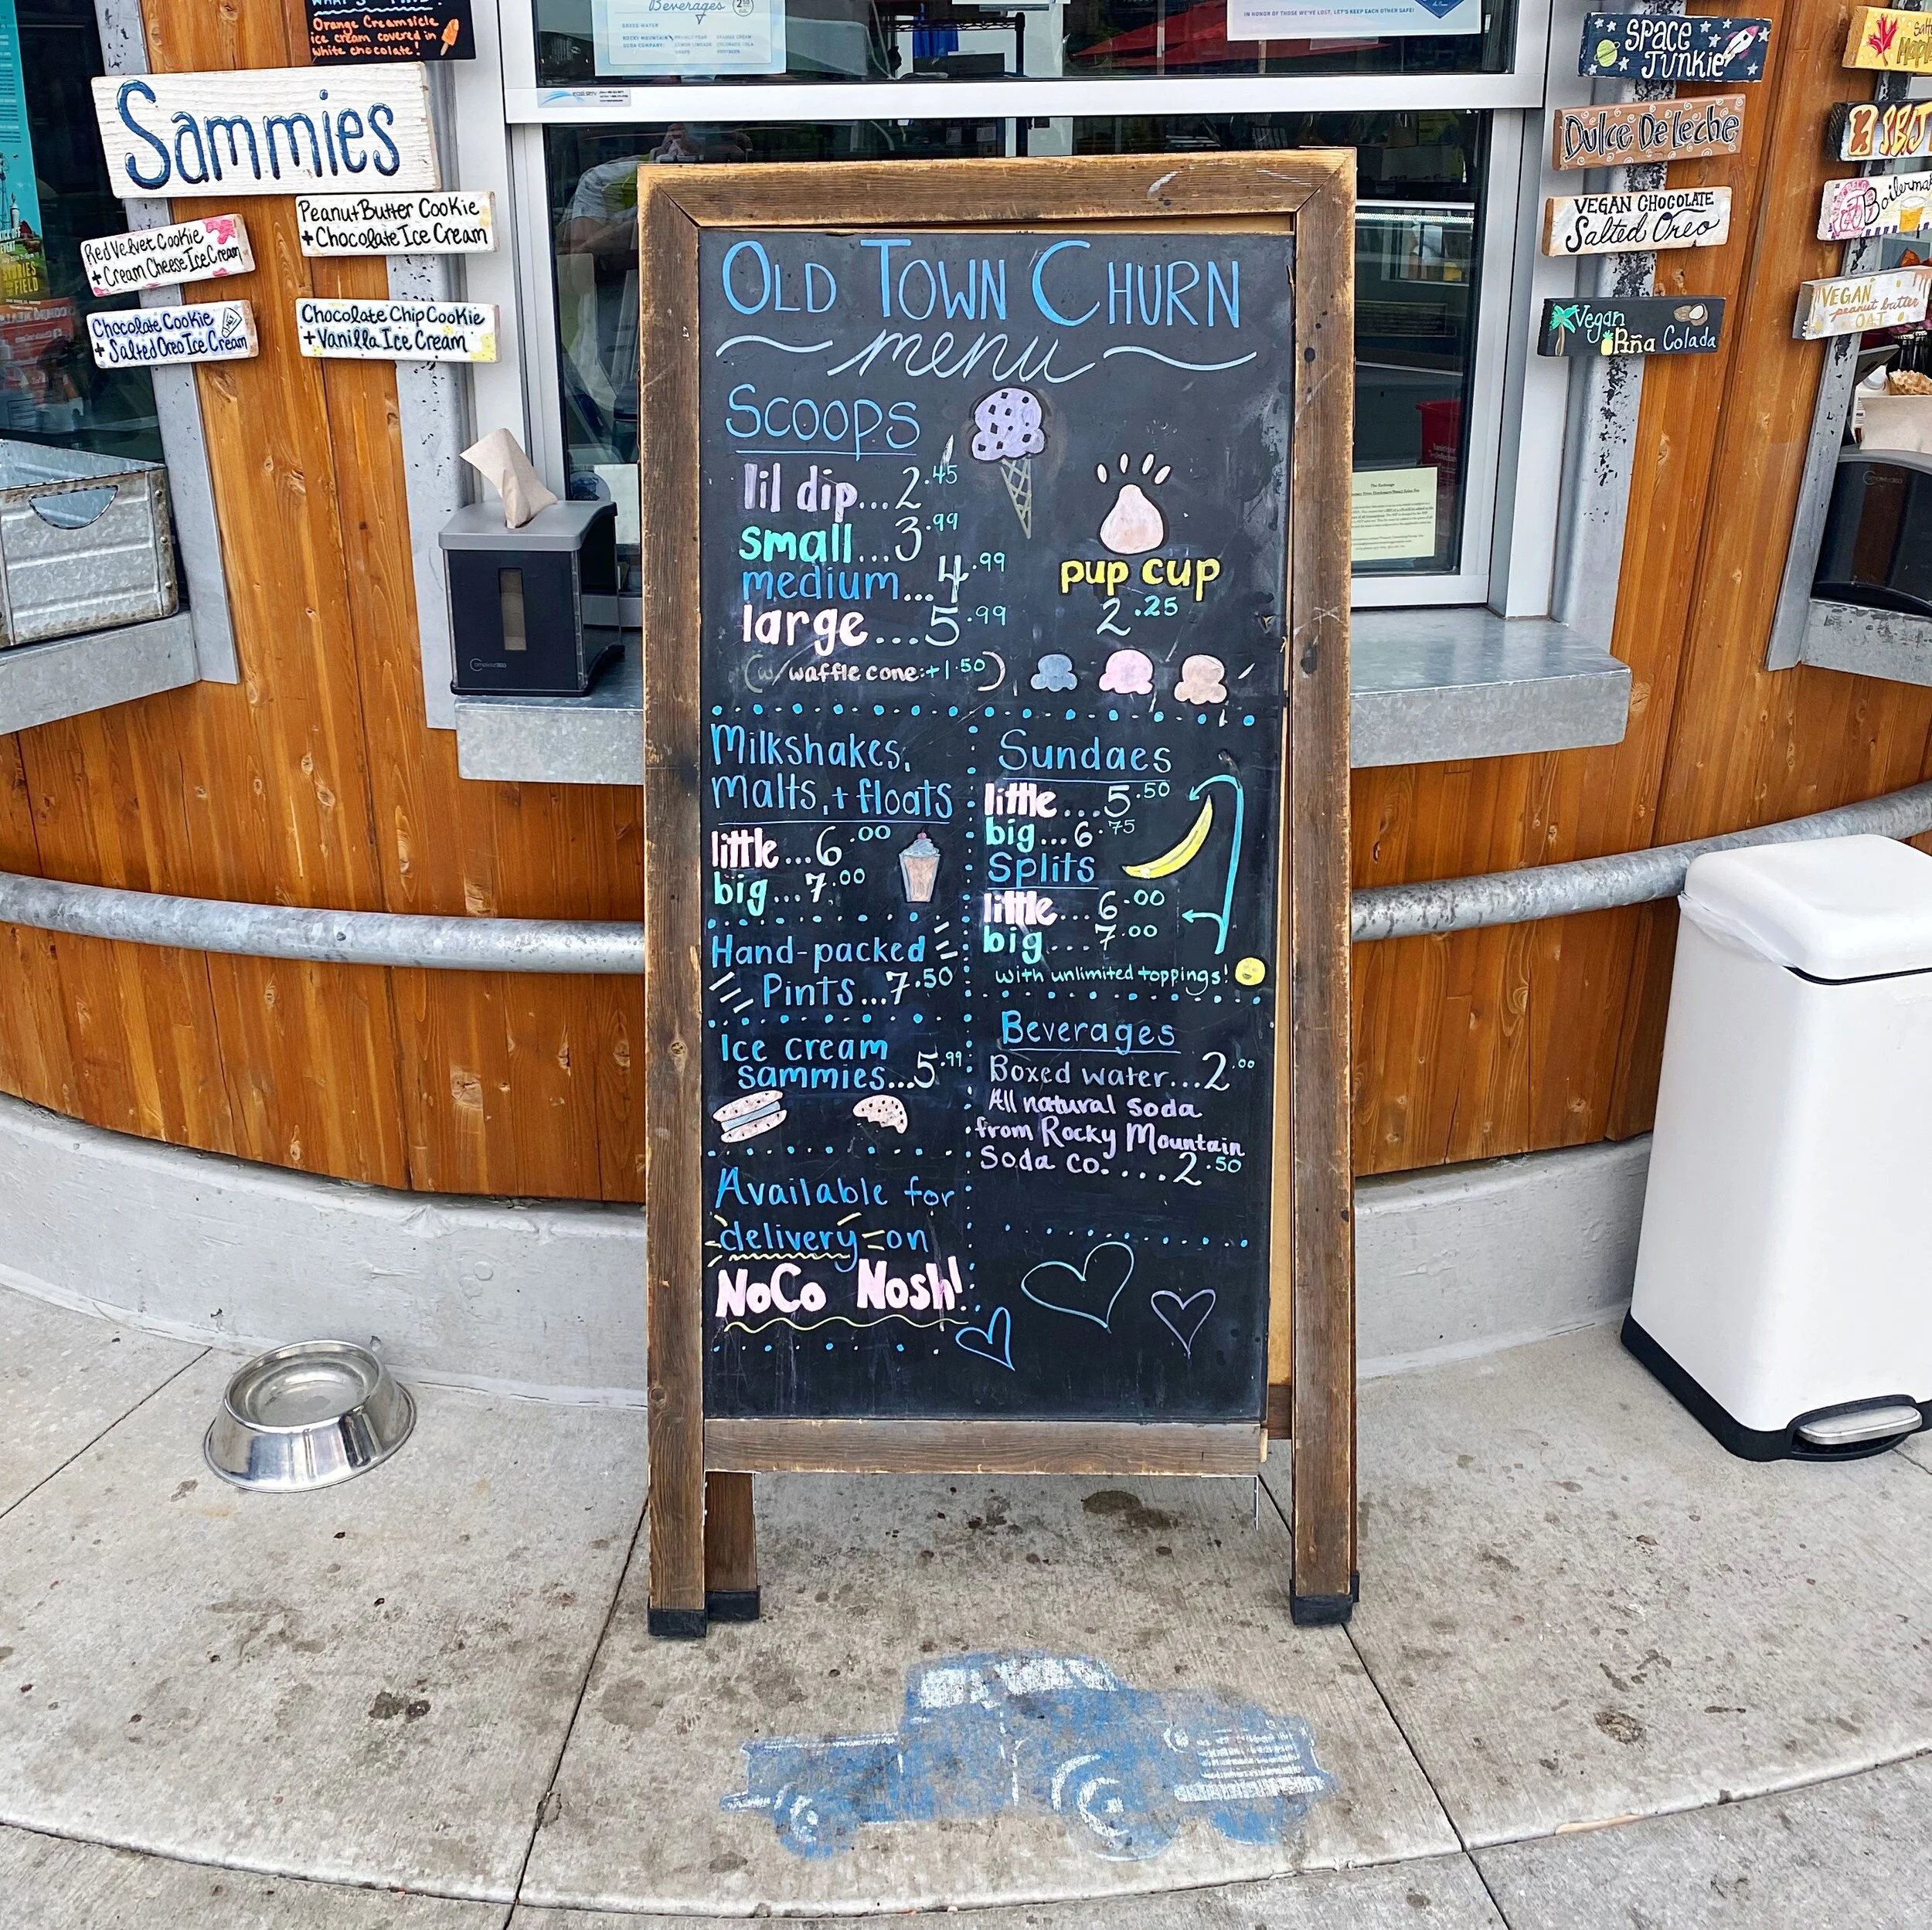 Orange Creamsicle
ice cream covered in
white chocolate!
Sammies
Red Velvet Cookie
+ Cream Cheese Ice Cream
Peanut Butter Cookie
+ Chocolate Ice Cream
Chocolate Cookie
+ Salted Oreo Ice Cream
Chocolate Chip Cookie
+ Vanilla Ice Cream
Beverages
BOXED WATER
IN HONOR OF THOSE WE'VE LOST, LET'S KEEP EACH OTHER SAFE!
OLD TOWN CHURN
menu
SCOOPS
lil dip...2.45
small...3.99
medium...4.99
large...5.99
(w/ waffle cone:+1.50)
pup cup
2.25
Milkshakes,
Malts, + floats
little...6.00
big...7.00
Hand-packed
Pints...7.50
Ice cream
sammies...5.99
Available for
delivery on
NoCo Nosh!
Sundaes
little...5.50
big...6.75
Splits
little....6.00
big....7.00
with unlimited toppings!
Beverages
Boxed water...2.00
All natural soda
from Rocky Mountain
Soda co.....2.50
SPACE
JUNKIE
Dulce De Leche
VEGAN CHOCOLATE
Salted Oreo
Vegan
Piña Colada
SB&J
VEGAN
peanut butter
OAT